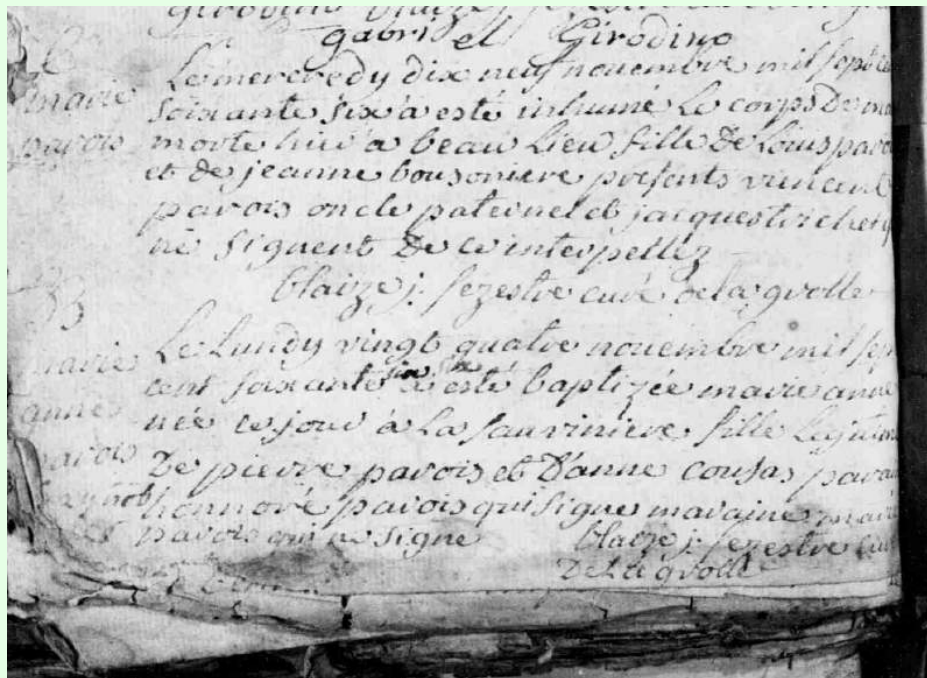 gabriel Girodino
Le mercredy dix neuf novembre mil sept cen
marie soixante six a esté inhumé le corps de ma
pavois morte hier a beau Lieu fille de Louis pavoi
et de jeanne bousoniere presents vincent
pavois oncle paternel et jacques
ne signent de ce interpellez
blaize j. sezestre curé de la grolle
marie Le Lundy vingt quatre novembre mil sep
anne cent soixante six a esté baptizée marie anne
née ce jour à La sauviniere fille Legitime
pavois De pierre pavois et D'anne cousas parain
honnoré pavois qui signe maraine marie
pavois qui ne signe blaize j. sezestre curé
De La grolle